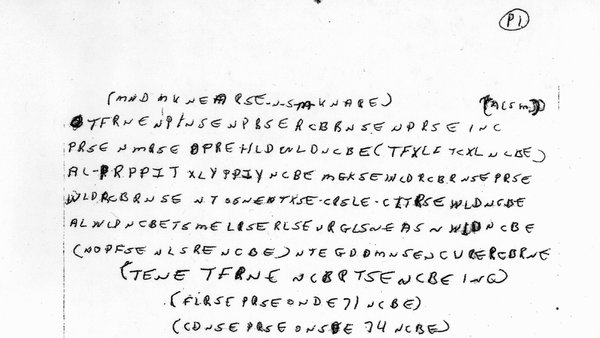 P1
(MND MKNEARSE-N-S-M-KNARE) (ACSM)
TFRNENPINSENPBSERCBRNSENPRSEINC
PRSENMRSEOPREHLDWLDNCBE(TFXLFTCXLNCBE)
AL-PRPPITXLYPPIYNCBEMGKSEWLDRCBRNSEPRSE
WLDRCBRNSENTOSNENTXSE-CRSLE-CITRSEWLDNCBE
ALWLDNCBETSMELRSERLSENRGLSNEASNWLDNCBE
(NOPFSENLSRENCBE)NTEGDDMNSENCURERCBRNE
(TENETFRNENCBRTSENCBEINC)
(FLRSEPRSEONDE71NCBE)
(CDNSEPRSEONSDE74NCBE)